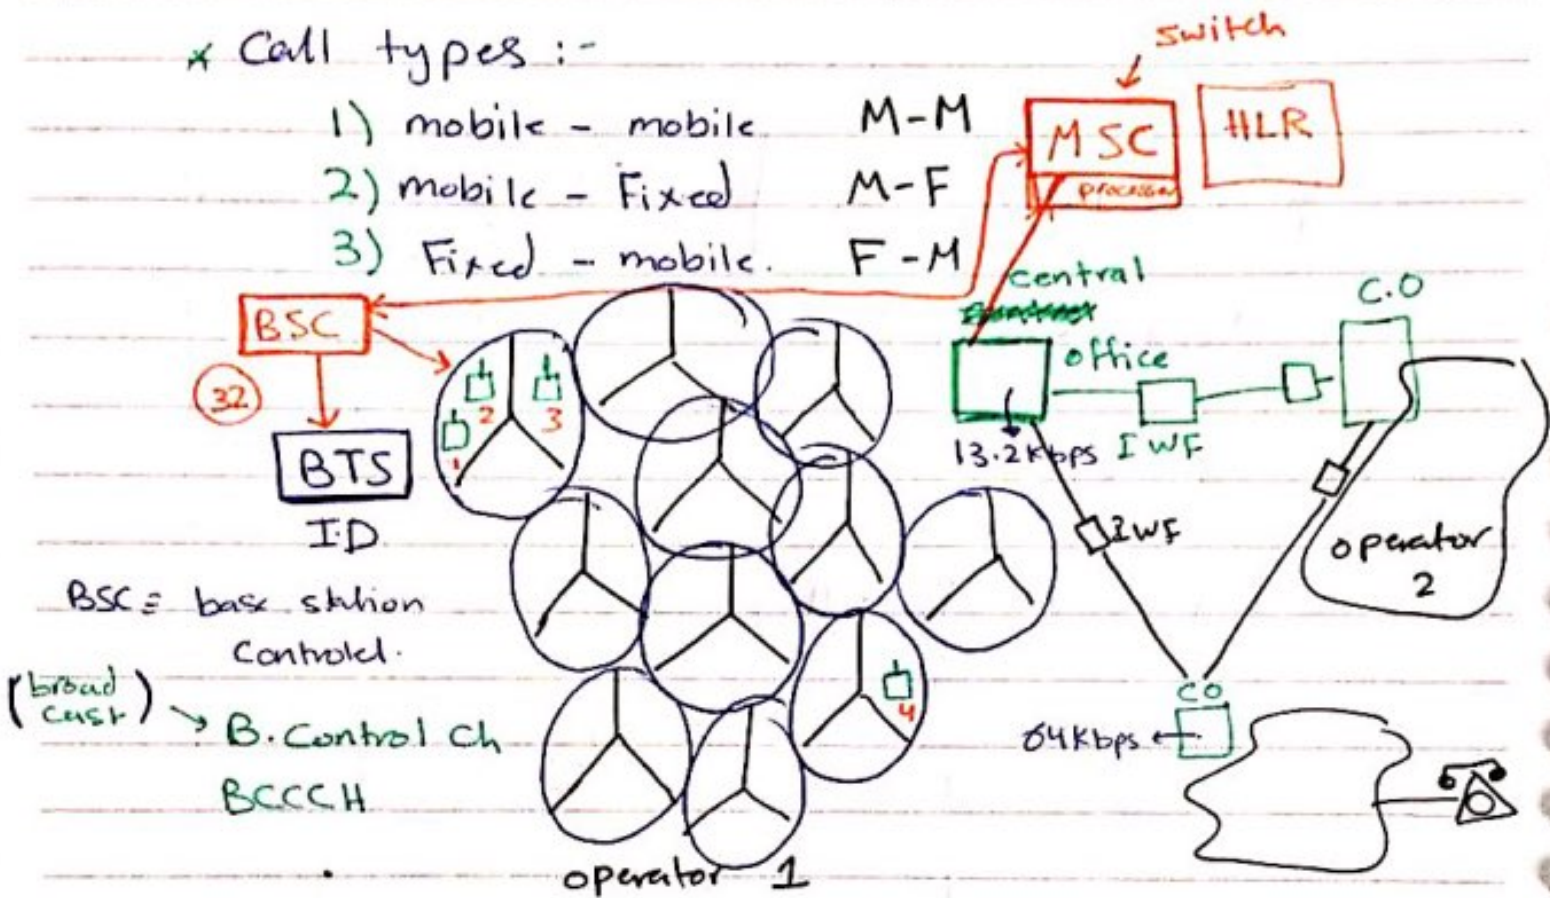 * Call types :-
1) mobile - mobile M-M
2) mobile - Fixed M-F
3) Fixed - mobile. F-M
switch
MSC
processor
HLR
central
office
C.O
BSC
32
BTS
ID
1
2
3
13.2kbps
IWF
IWF
operator
2
BSC ≡ base station
Controlel.
(broad
cast)
B. Control Ch
BCCCH
4
CO
64kbps
operator 1